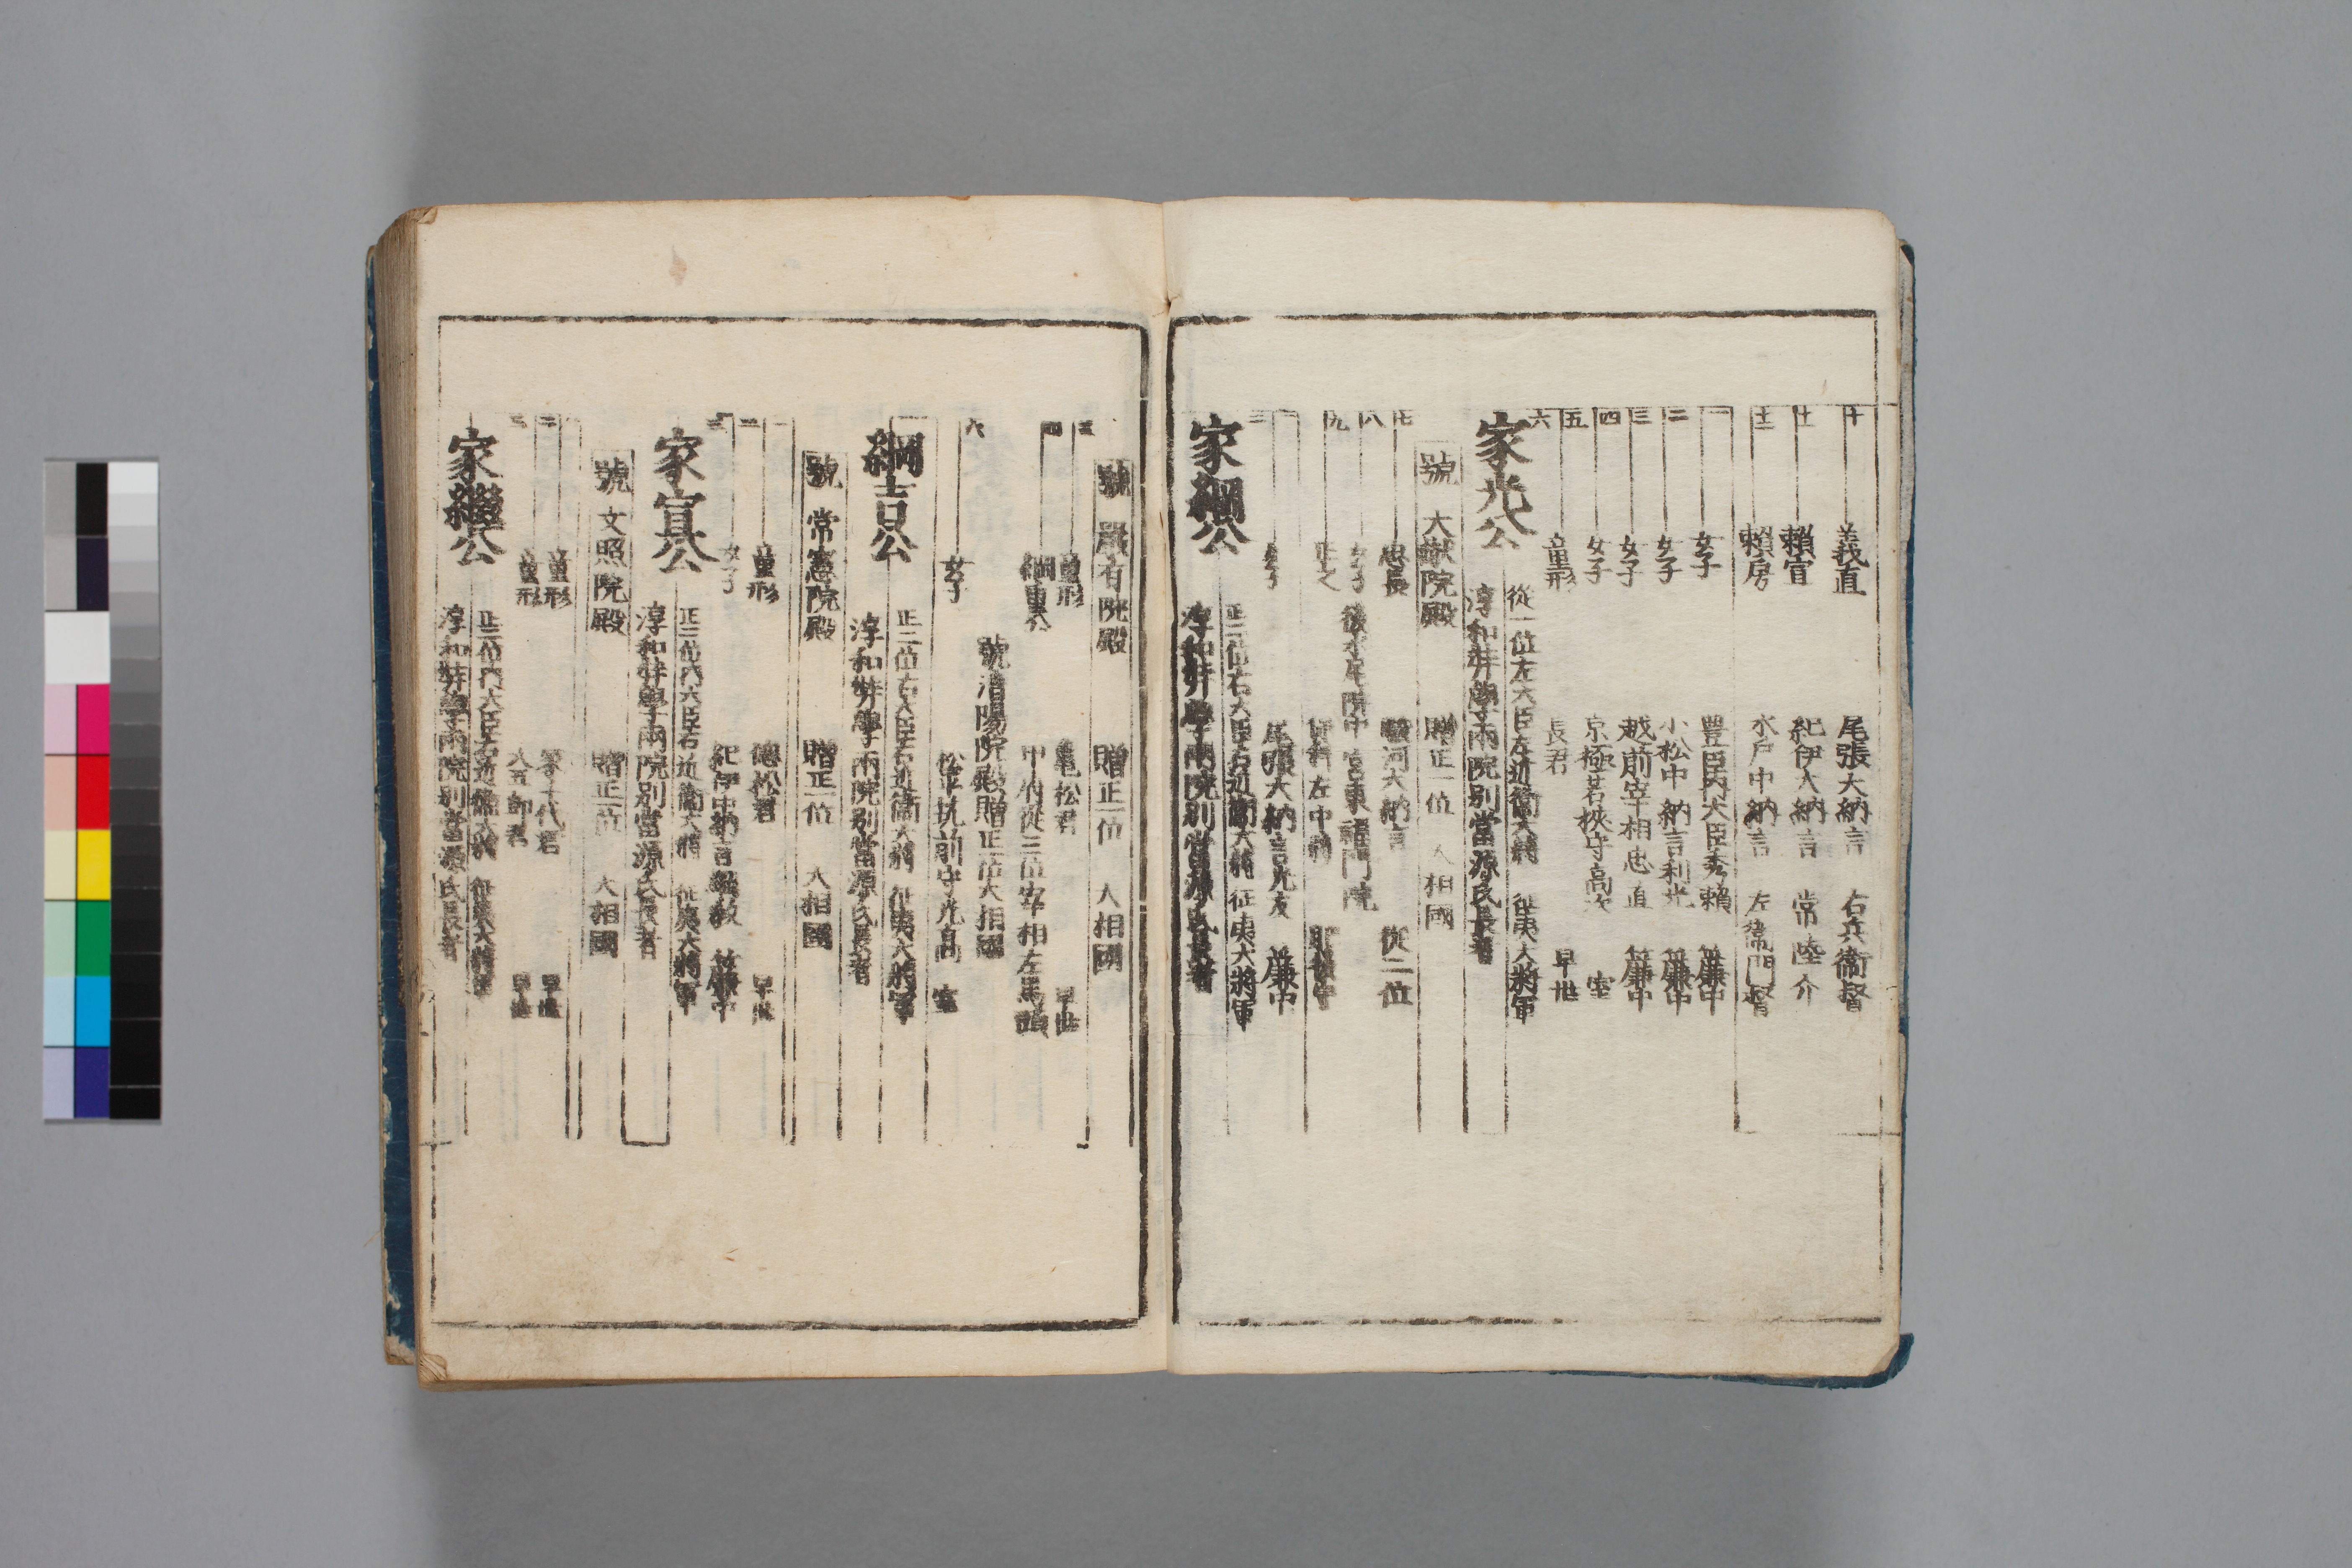 十 義直 尾張大納言 右兵衞督
十一 賴宣 紀伊大納言 常陸介
十二 賴房 水戸中納言 左衞門督
一 女子 豊臣内大臣秀賴 簾中
二 女子 小松中納言利光 簾中
三 女子 越前宰相忠直 簾中
四 女子 京極若狹守高次 室
五 童形 長君 早世
六
家光公 從一位左大臣左近衞大將 征夷大將軍
淳和弉學兩院別當源氏長者
號 大猷院殿 贈正一位 大相國
七 忠長 駿河大納言 從二位
八 女子 後水尾院中宮東福門院
九 正之 左中將
女子 尾張大納言光友 簾中
二
家綱公 正二位右大臣右近衞大將 征夷大將軍
淳和弉學兩院別當源氏長者
號 嚴有院殿 贈正一位 大相國
三 童形 亀松君 早世
四 綱重公 甲府從三位宰相左馬頭
號清陽院殿贈正一位大相國
六 女子 松平筑前守光高 室
綱吉公 正二位右大臣右近衞大將 征夷大將軍
淳和弉學兩院別當源氏長者
號 常憲院殿 贈正一位 大相國
一 童形 德松君 早世
二 女子 紀伊中納言綱教 簾中
三
家宣公 正二位内大臣右近衞大將 征夷大將軍
淳和弉學兩院別當源氏長者
號 文照院殿 贈正一位 大相國
一 童形 家千代君 早世
二 童形 大五郎君 早世
三
家繼公 正二位内大臣右近衞大將 征夷大將軍
淳和弉學兩院別當源氏長者